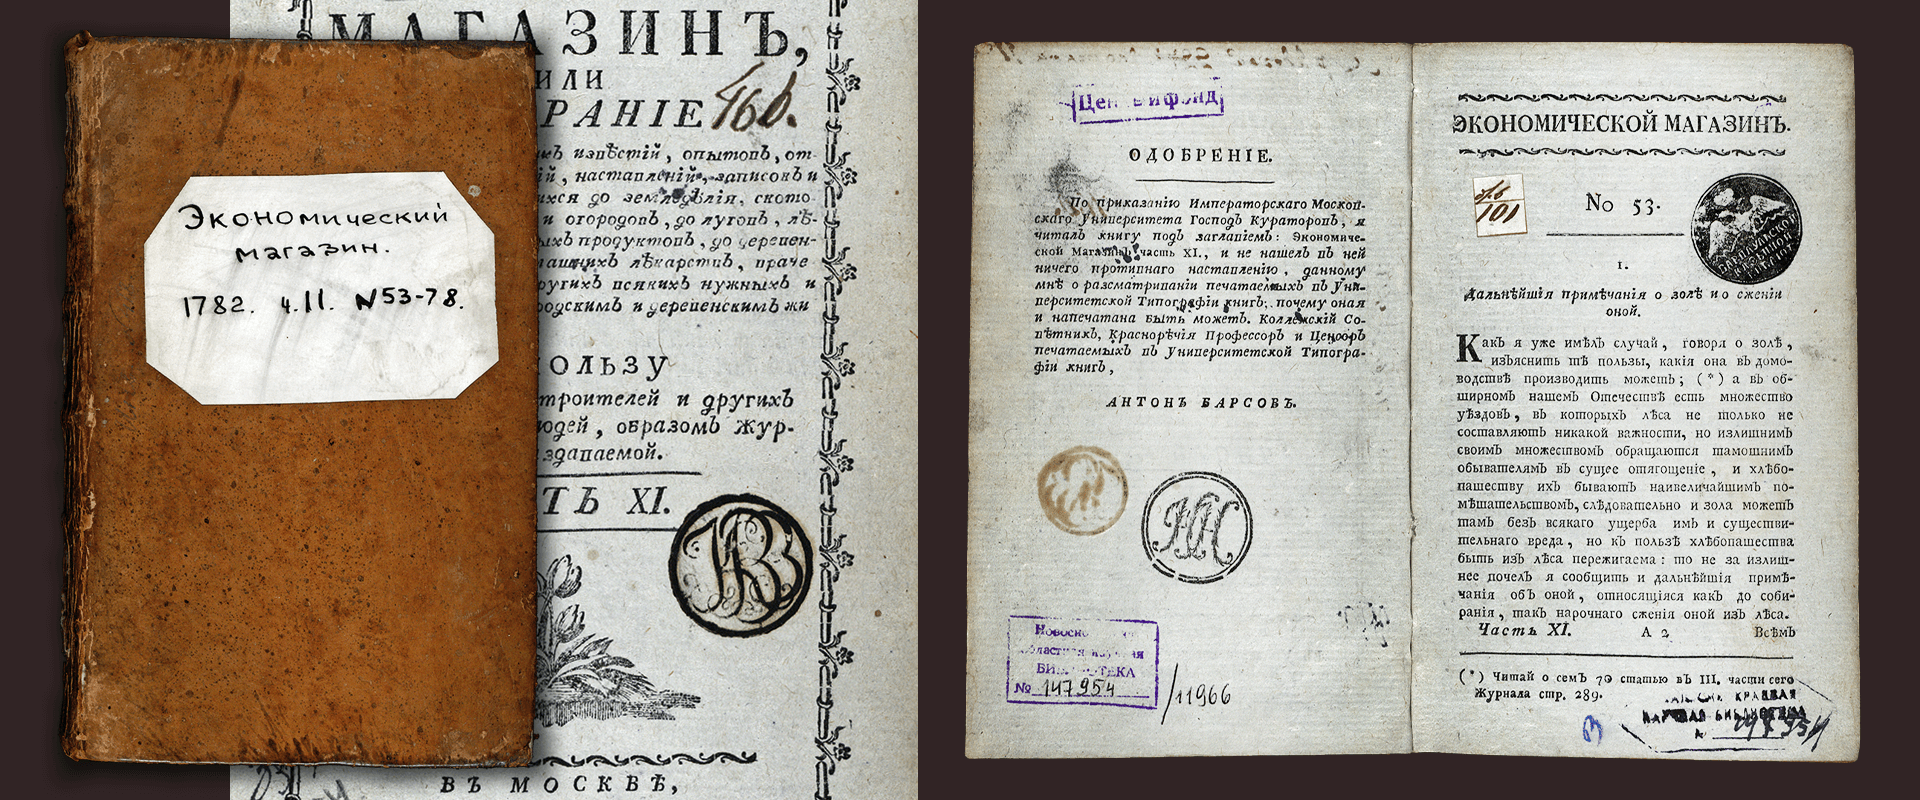 Экономический
магазин.
1782. ч.11. №53-78.
МАГАЗИНЪ,
ИЛИ
РАНІЕ
46б.
извѣстій, опытовъ, от-
наставленій, записокъ и
до земледѣлія, ското-
и огородовъ, до луговъ, лѣ-
продуктовъ, до деревен-
лѣкарствъ, враче
всякихъ нужныхъ и
и деревенскимъ жи
ОЛЬЗУ
троителей и другихъ
юдей, образомъ Жур-
здаваемой.
ТЬ XI.
ВЪ МОСКВѢ,
ОДОБРЕНІЕ.
По приказанію Императорскаго Москов-
скаго Университета Господъ Кураторовъ, я
читалъ книгу подъ заглавіемъ: Экономиче-
ской Магазинъ часть XI., и не нашелъ въ ней
ничего противнаго наставленію, данному
мнѣ о разсматриваніи печатаемыхъ въ Уни-
верситетской Типографіи книгъ; почему оная
и напечатана быть можетъ. Коллежскій Со-
вѣтникъ, Краснорѣчія Профессоръ и Ценсоръ
печатаемыхъ въ Университетской Типогра-
фіи книгъ,
АНТОНЪ БАРСОВЪ.
БИБЛИОТЕКА
№ 147954
/11966
ЭКОНОМИЧЕСКОЙ МАГАЗИНЪ.
No 53.
101
I.
Дальнѣйшія примѣчанія о золѣ и о сженіи
оной.
Какъ я уже имѣлъ случай, говоря о золѣ,
изъяснить тѣ пользы, какія она въ домо-
водствѣ производить можетъ; (*) а въ об-
ширномъ нашемъ Отечествѣ есть множество
уѣздовъ, въ которыхъ лѣса не только не
составляютъ никакой важности, но излишнимъ
своимъ множествомъ обращаются тамошнимъ
обывателямъ въ сущее отягощеніе, и хлѣбо-
пашеству ихъ бываютъ наивеличайшимъ по-
мѣшательствомъ, слѣдовательно и зола можетъ
тамъ безъ всякаго ущерба имъ и существи-
тельнаго вреда, но къ пользѣ хлѣбопашества
быть изъ лѣса пережигаема: то не за излиш-
нее почелъ я сообщить и дальнѣйшія примѣ-
чанія объ оной, относящіяся какъ до соби-
ранія, такъ нарочнаго сженія оной изъ лѣса.
Часть XI. А 2 Всѣмъ
(*) Читай о семъ 70 статью въ III. части сего
Журнала стр. 289.
КРАЕВАЯ
НАУЧНАЯ БИБЛИОТЕКА